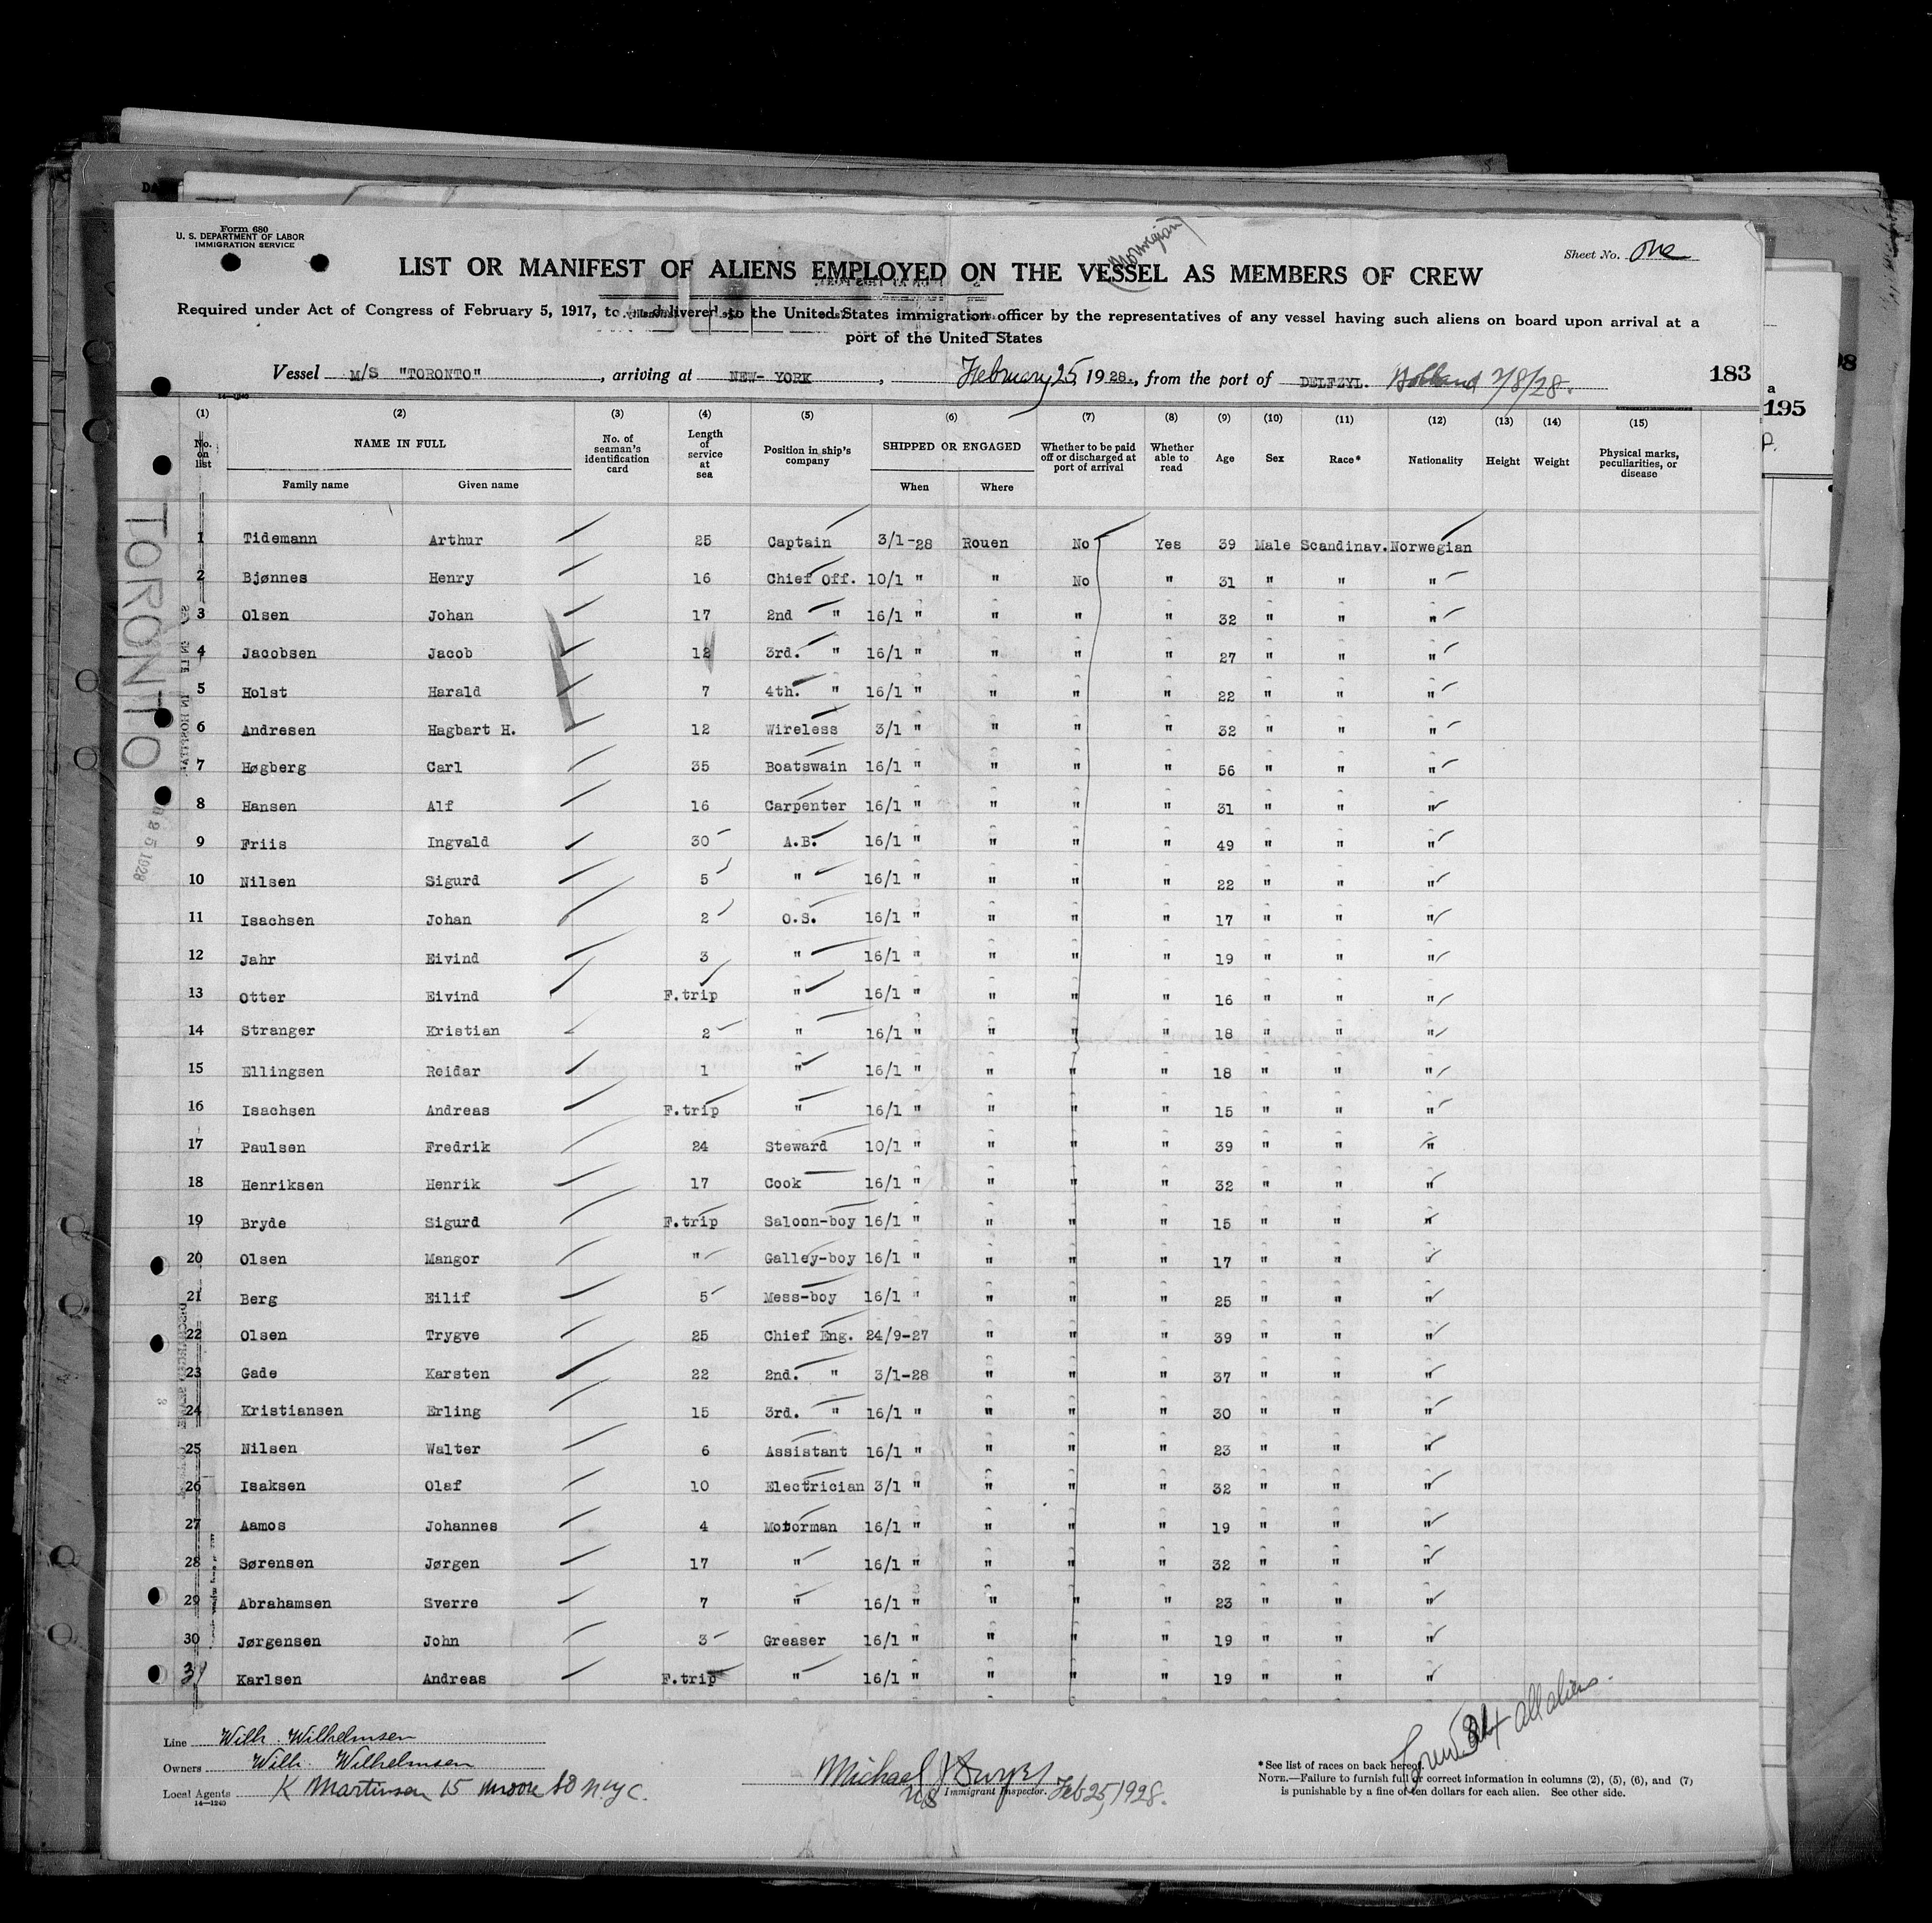 Form 680
U. S. DEPARTMENT OF LABOR
IMMIGRATION SERVICE
(Norwegian)
Sheet No. One
LIST OR MANIFEST OF ALIENS EMPLOYED ON THE VESSEL AS MEMBERS OF CREW
Required under Act of Congress of February 5, 1917, to be delivered to the United States immigration officer by the representatives of any vessel having such aliens on board upon arrival at a
port of the United States
Vessel M/S "TORONTO", arriving at NEW-YORK, February 25, 1928., from the port of DELFZYL. Holland 2/8/28.
183
195
14—1240
(1) (2) (3) (4) (5) (6) (7) (8) (9) (10) (11) (12) (13) (14) (15)
No. on list NAME IN FULL Family name Given name No. of seaman's identification card Length of service at sea Position in ship's company SHIPPED OR ENGAGED When Where Whether to be paid off or discharged at port of arrival Whether able to read Age Sex Race* Nationality Height Weight Physical marks, peculiarities, or disease
1 Tidemann Arthur 25 Captain 3/1-28 Rouen No Yes 39 Male Scandinav. Norwegian
2 Bjønnes Henry 16 Chief Off. 10/1 " " No " 31 " " "
3 Olsen Johan 17 2nd " 16/1 " " " " 32 " " "
4 Jacobsen Jacob 12 3rd. " 16/1 " " " " 27 " " "
5 Holst Harald 7 4th. " 16/1 " " " " 22 " " "
6 Andresen Hagbart H. 12 Wireless 3/1 " " " " 32 " " "
7 Høgberg Carl 35 Boatswain 16/1 " " " " 56 " " "
8 Hansen Alf 16 Carpenter 16/1 " " " " 31 " " "
9 Friis Ingvald 30 A.B. 16/1 " " " " 49 " " "
10 Nilsen Sigurd 5 " 16/1 " " " " 22 " " "
11 Isachsen Johan 2 O.S. 16/1 " " " " 17 " " "
12 Jahr Eivind 3 " 16/1 " " " " 19 " " "
13 Otter Eivind F.trip " 16/1 " " " " 16 " " "
14 Stranger Kristian 2 " 16/1 " " " " 18 " " "
15 Ellingsen Reidar 1 " 16/1 " " " " 18 " " "
16 Isachsen Andreas F.trip " 16/1 " " " " 15 " " "
17 Paulsen Fredrik 24 Steward 10/1 " " " " 39 " " "
18 Henriksen Henrik 17 Cook 16/1 " " " " 32 " " "
19 Bryde Sigurd F.trip Saloon-boy 16/1 " " " " 15 " " "
20 Olsen Mangor " Galley-boy 16/1 " " " " 17 " " "
21 Berg Eilif 5 Mess-boy 16/1 " " " " 25 " " "
22 Olsen Trygve 25 Chief Eng. 24/9-27 " " " 39 " " "
23 Gade Karsten 22 2nd. " 3/1-28 " " " 37 " " "
24 Kristiansen Erling 15 3rd. " 16/1 " " " " 30 " " "
25 Nilsen Walter 6 Assistant 16/1 " " " " 23 " " "
26 Isaksen Olaf 10 Electrician 3/1 " " " " 32 " " "
27 Aamos Johannes 4 Motorman 16/1 " " " " 19 " " "
28 Sørensen Jørgen 17 " 16/1 " " " " 32 " " "
29 Abrahamsen Sverre 7 " 16/1 " " " " 23 " " "
30 Jørgensen John 3 Greaser 16/1 " " " " 19 " " "
31 Karlsen Andreas F.trip " 16/1 " " " " 19 " " "
TORONTO
Line Wilh. Wilhelmsen
Owners Wilh. Wilhelmsen
Local Agents K Martinson 15 Moore St N.Y.C.
14—1240
Michael J
US Immigrant Inspector. Feb 25, 1928.
all aliens.
* See list of races on back hereof.
NOTE.—Failure to furnish full or correct information in columns (2), (5), (6), and (7)
is punishable by a fine of ten dollars for each alien. See other side.